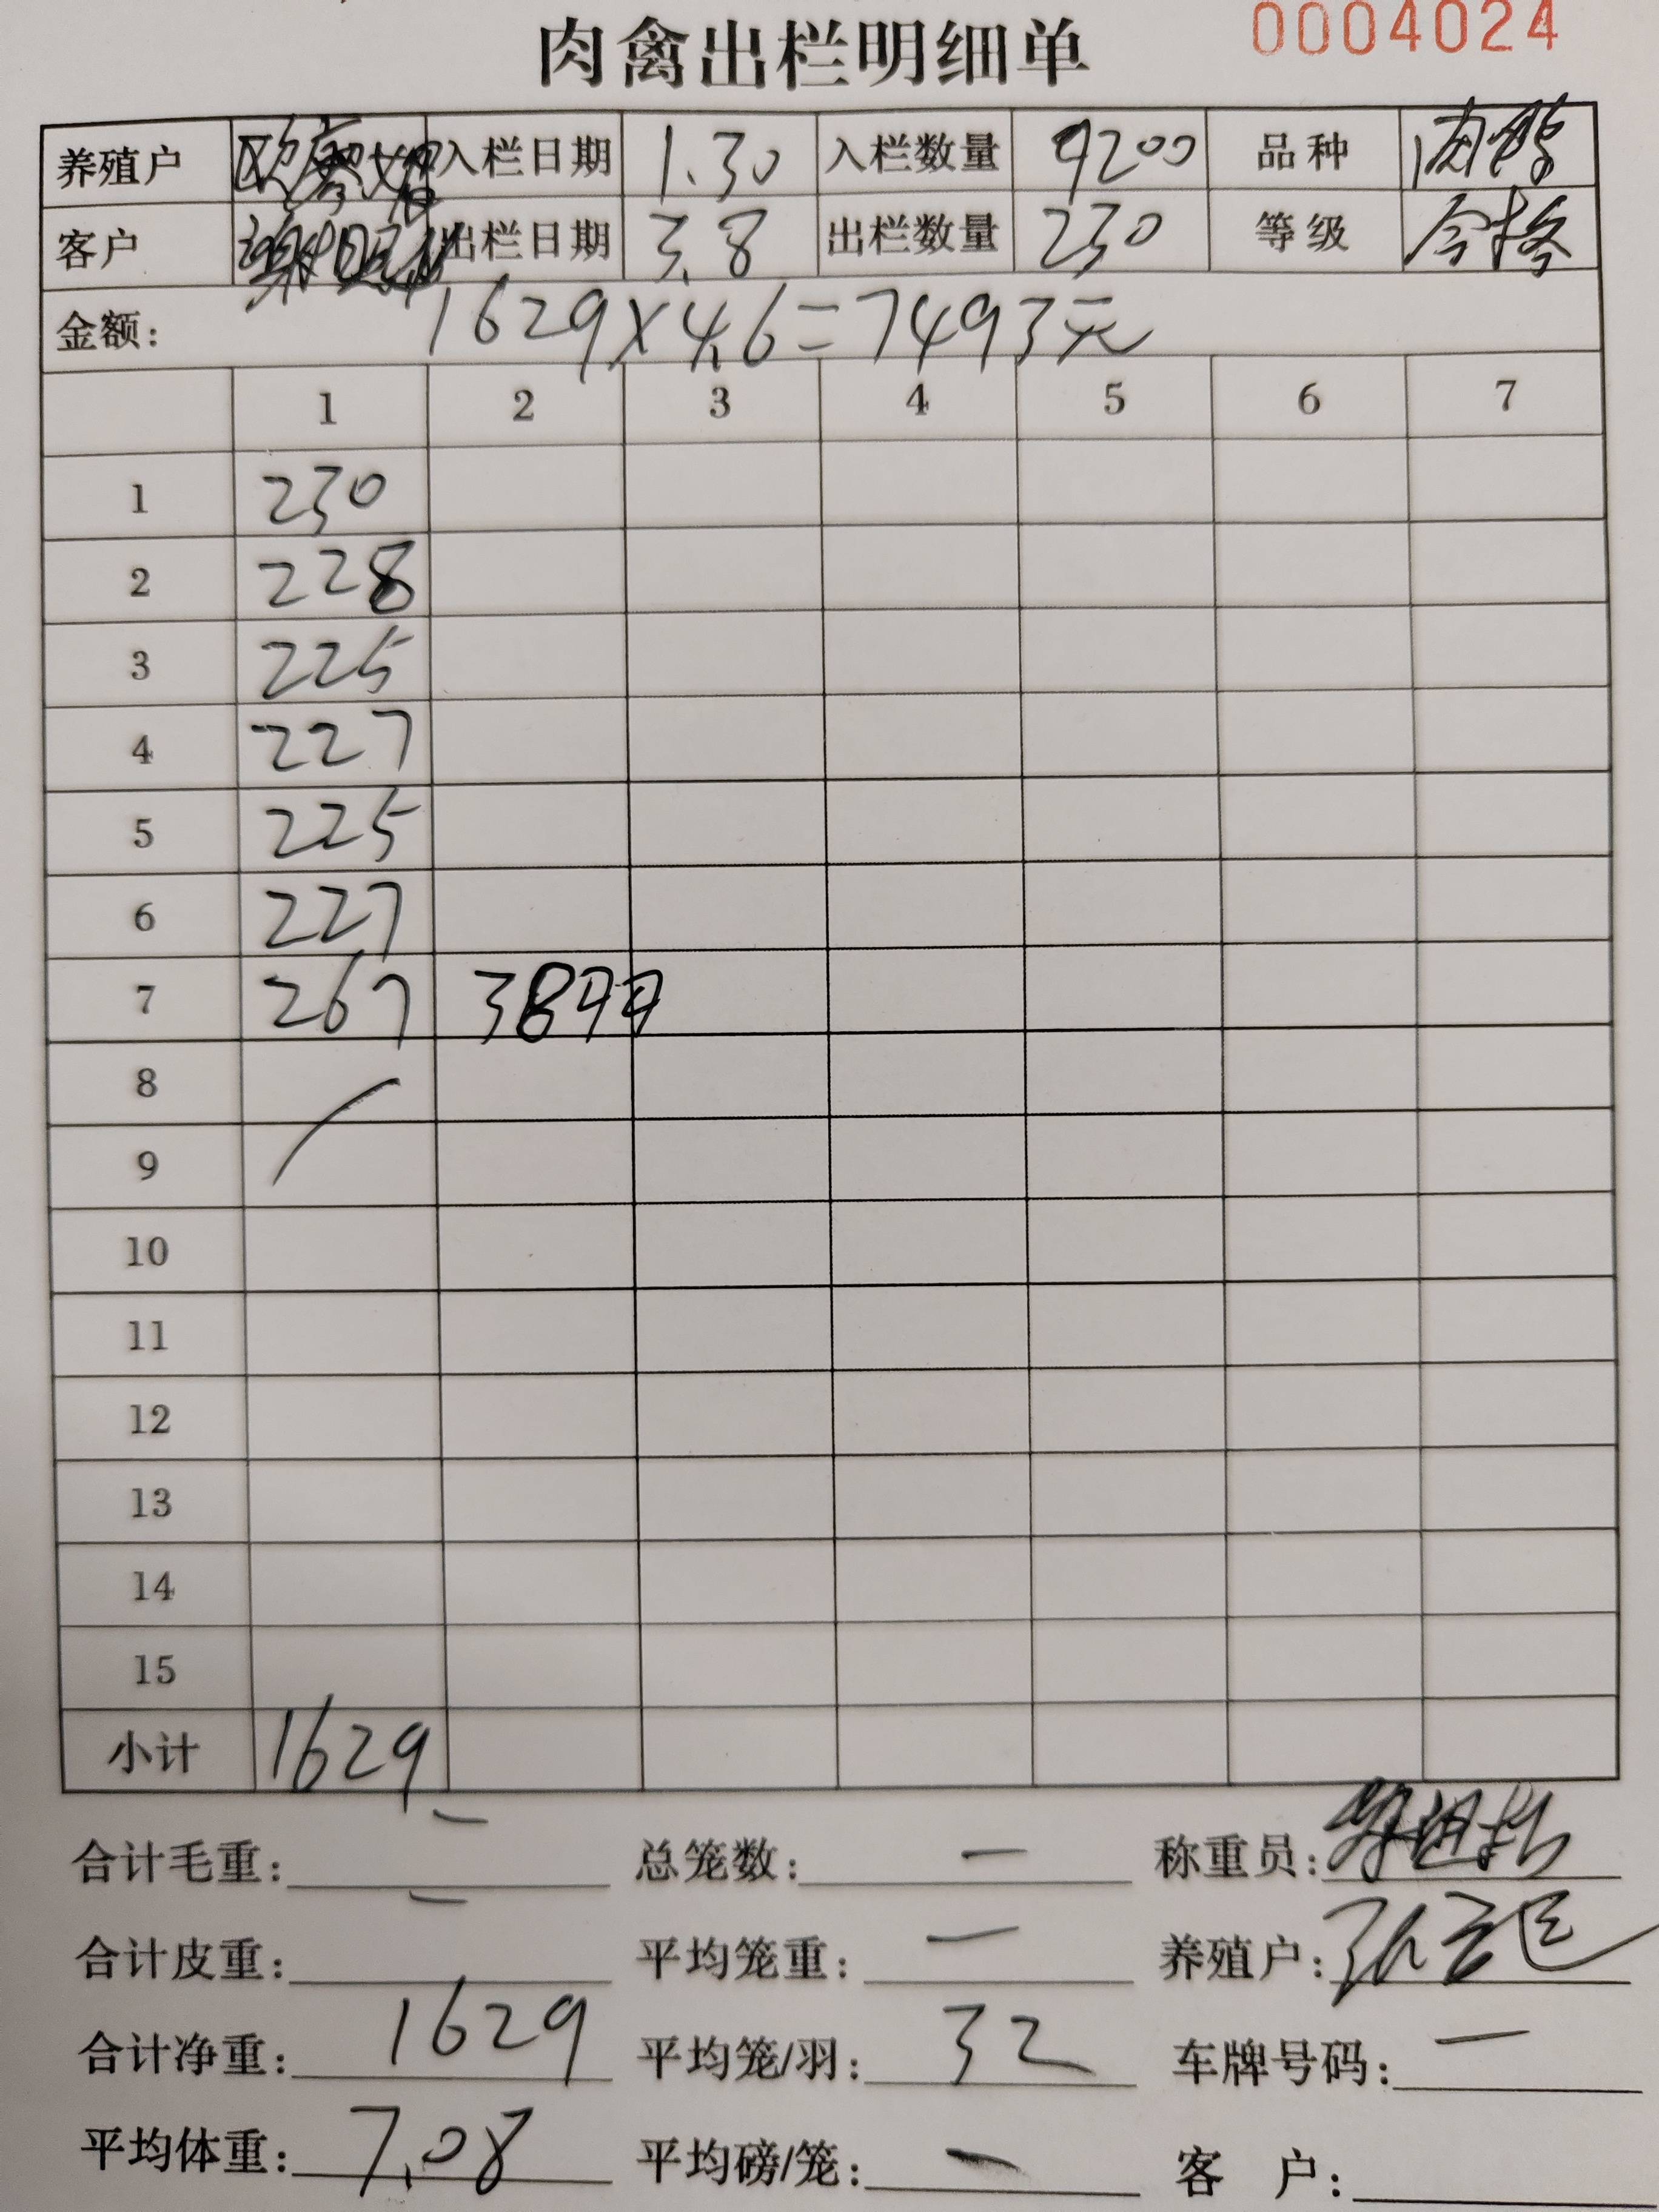 肉禽出栏明细单 0004024
养殖户 入栏日期 1.30 入栏数量 9200 品种
客户 出栏日期 3.8 出栏数量 230 等级 合格
金额: 1629×4.6=7493元
1 2 3 4 5 6 7
1 230
2 228
3 225
4 227
5 225
6 227
7 267
8
9
10
11
12
13
14
15
小计 1629
合计毛重: — 总笼数: — 称重员:
合计皮重: — 平均笼重: — 养殖户:
合计净重: 1629 平均笼/羽: 32 车牌号码: —
平均体重: 7.08 平均磅/笼: — 客户: